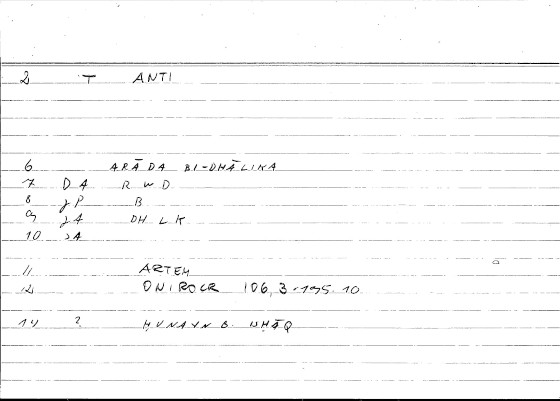 2 T ANTI
6 ARĀDA BI-DHĀLIKA
7 DA RWD
8 jP B
9 jA DH LK
10 jA
11 ARTEM
12 ONIROCR 106, 3-195.10
14 ? ḤUNAYN B. ISHĀQ